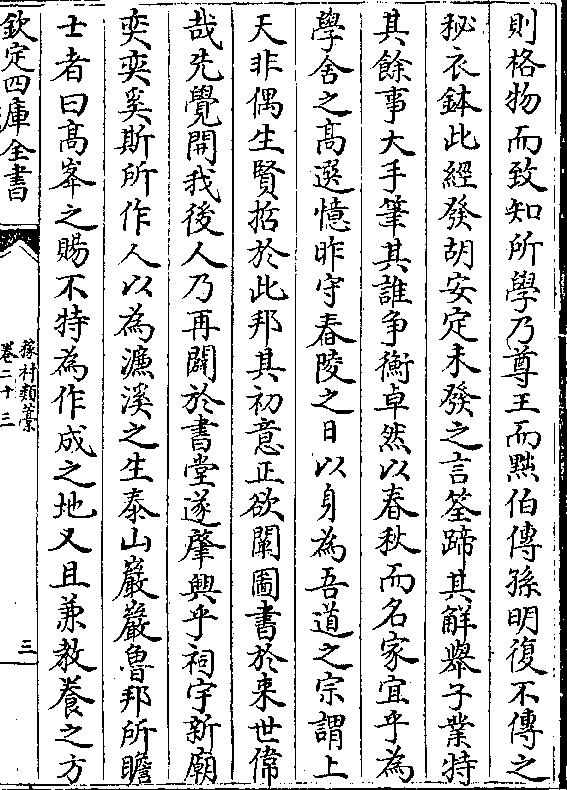 則格物而致知所學乃尊王而黜伯傳孫明復不傳之
秘衣鉢此經發胡安定未發之言筌蹄其解舉子業特
其餘事大手筆其誰爭衡卓然以春秋而名家宜乎為
學舍之高選憶昨守舂陵之日以身為吾道之宗謂上
天非偶生賢哲於此邦其初意正欲闡圖書於来世偉
哉先覺開我後人乃再闢於書堂遂肇興乎祠宇新廟
奕奕奚斯所作人以為濂溪之生泰山巖巖魯邦所瞻
士者曰髙峯之賜不特為作成之地又且兼教養之方
欽定四庫全書
稼村類藁
卷二十三
三